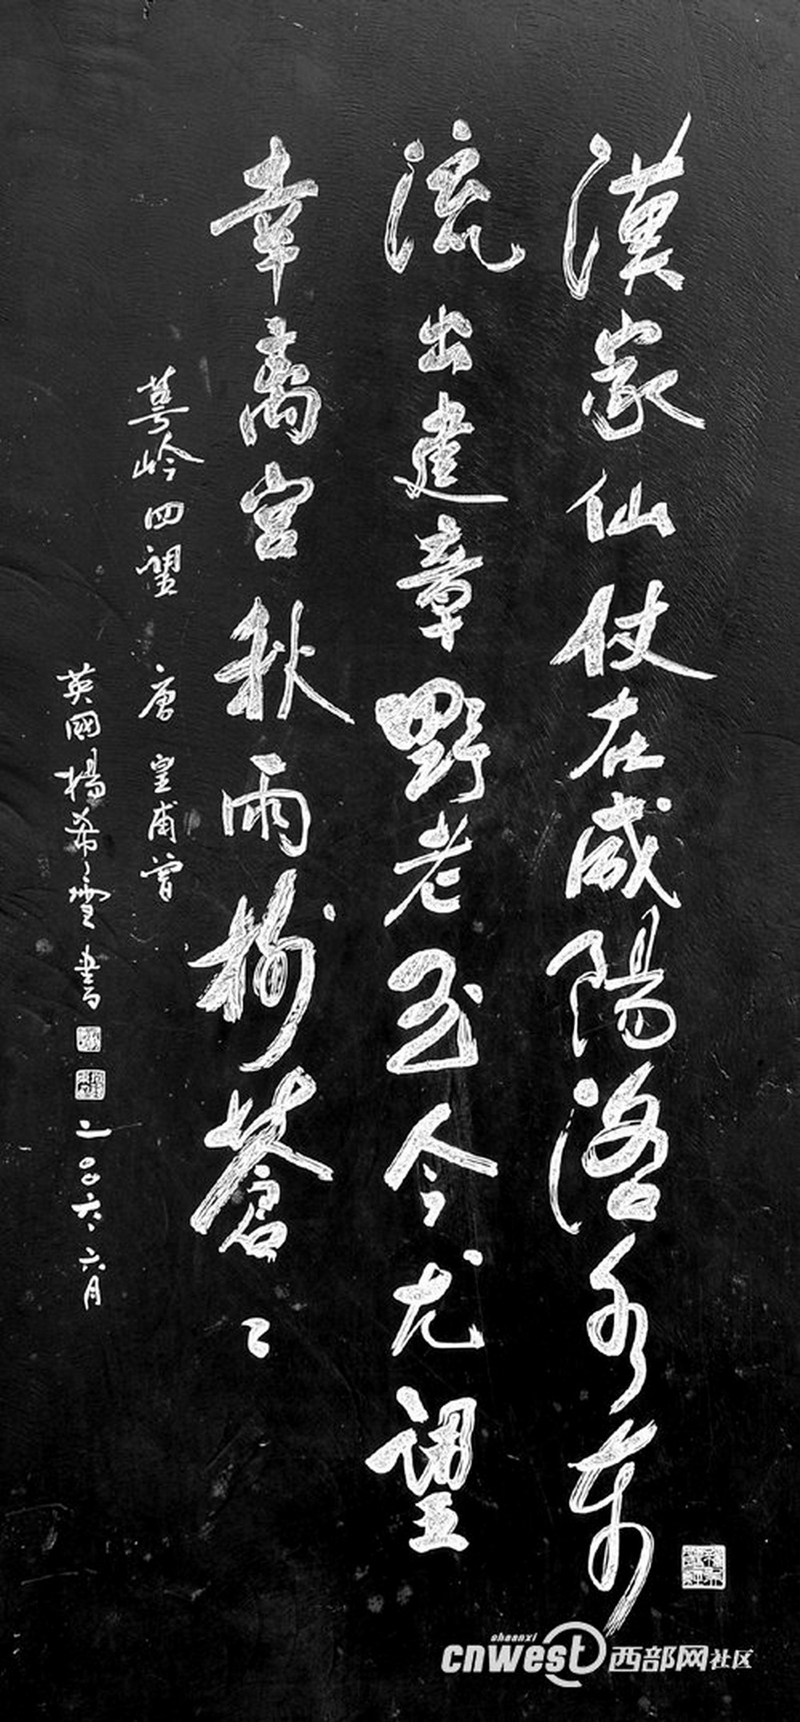 漢家仙仗在咸陽洛水東
流出建章野老至今尤望
幸離宮秋雨樹蒼〻
萼岭四望 唐 皇甫曾
英國楊希雪書
二〇〇六、六月
shaanxi
cnwest 西部网社区